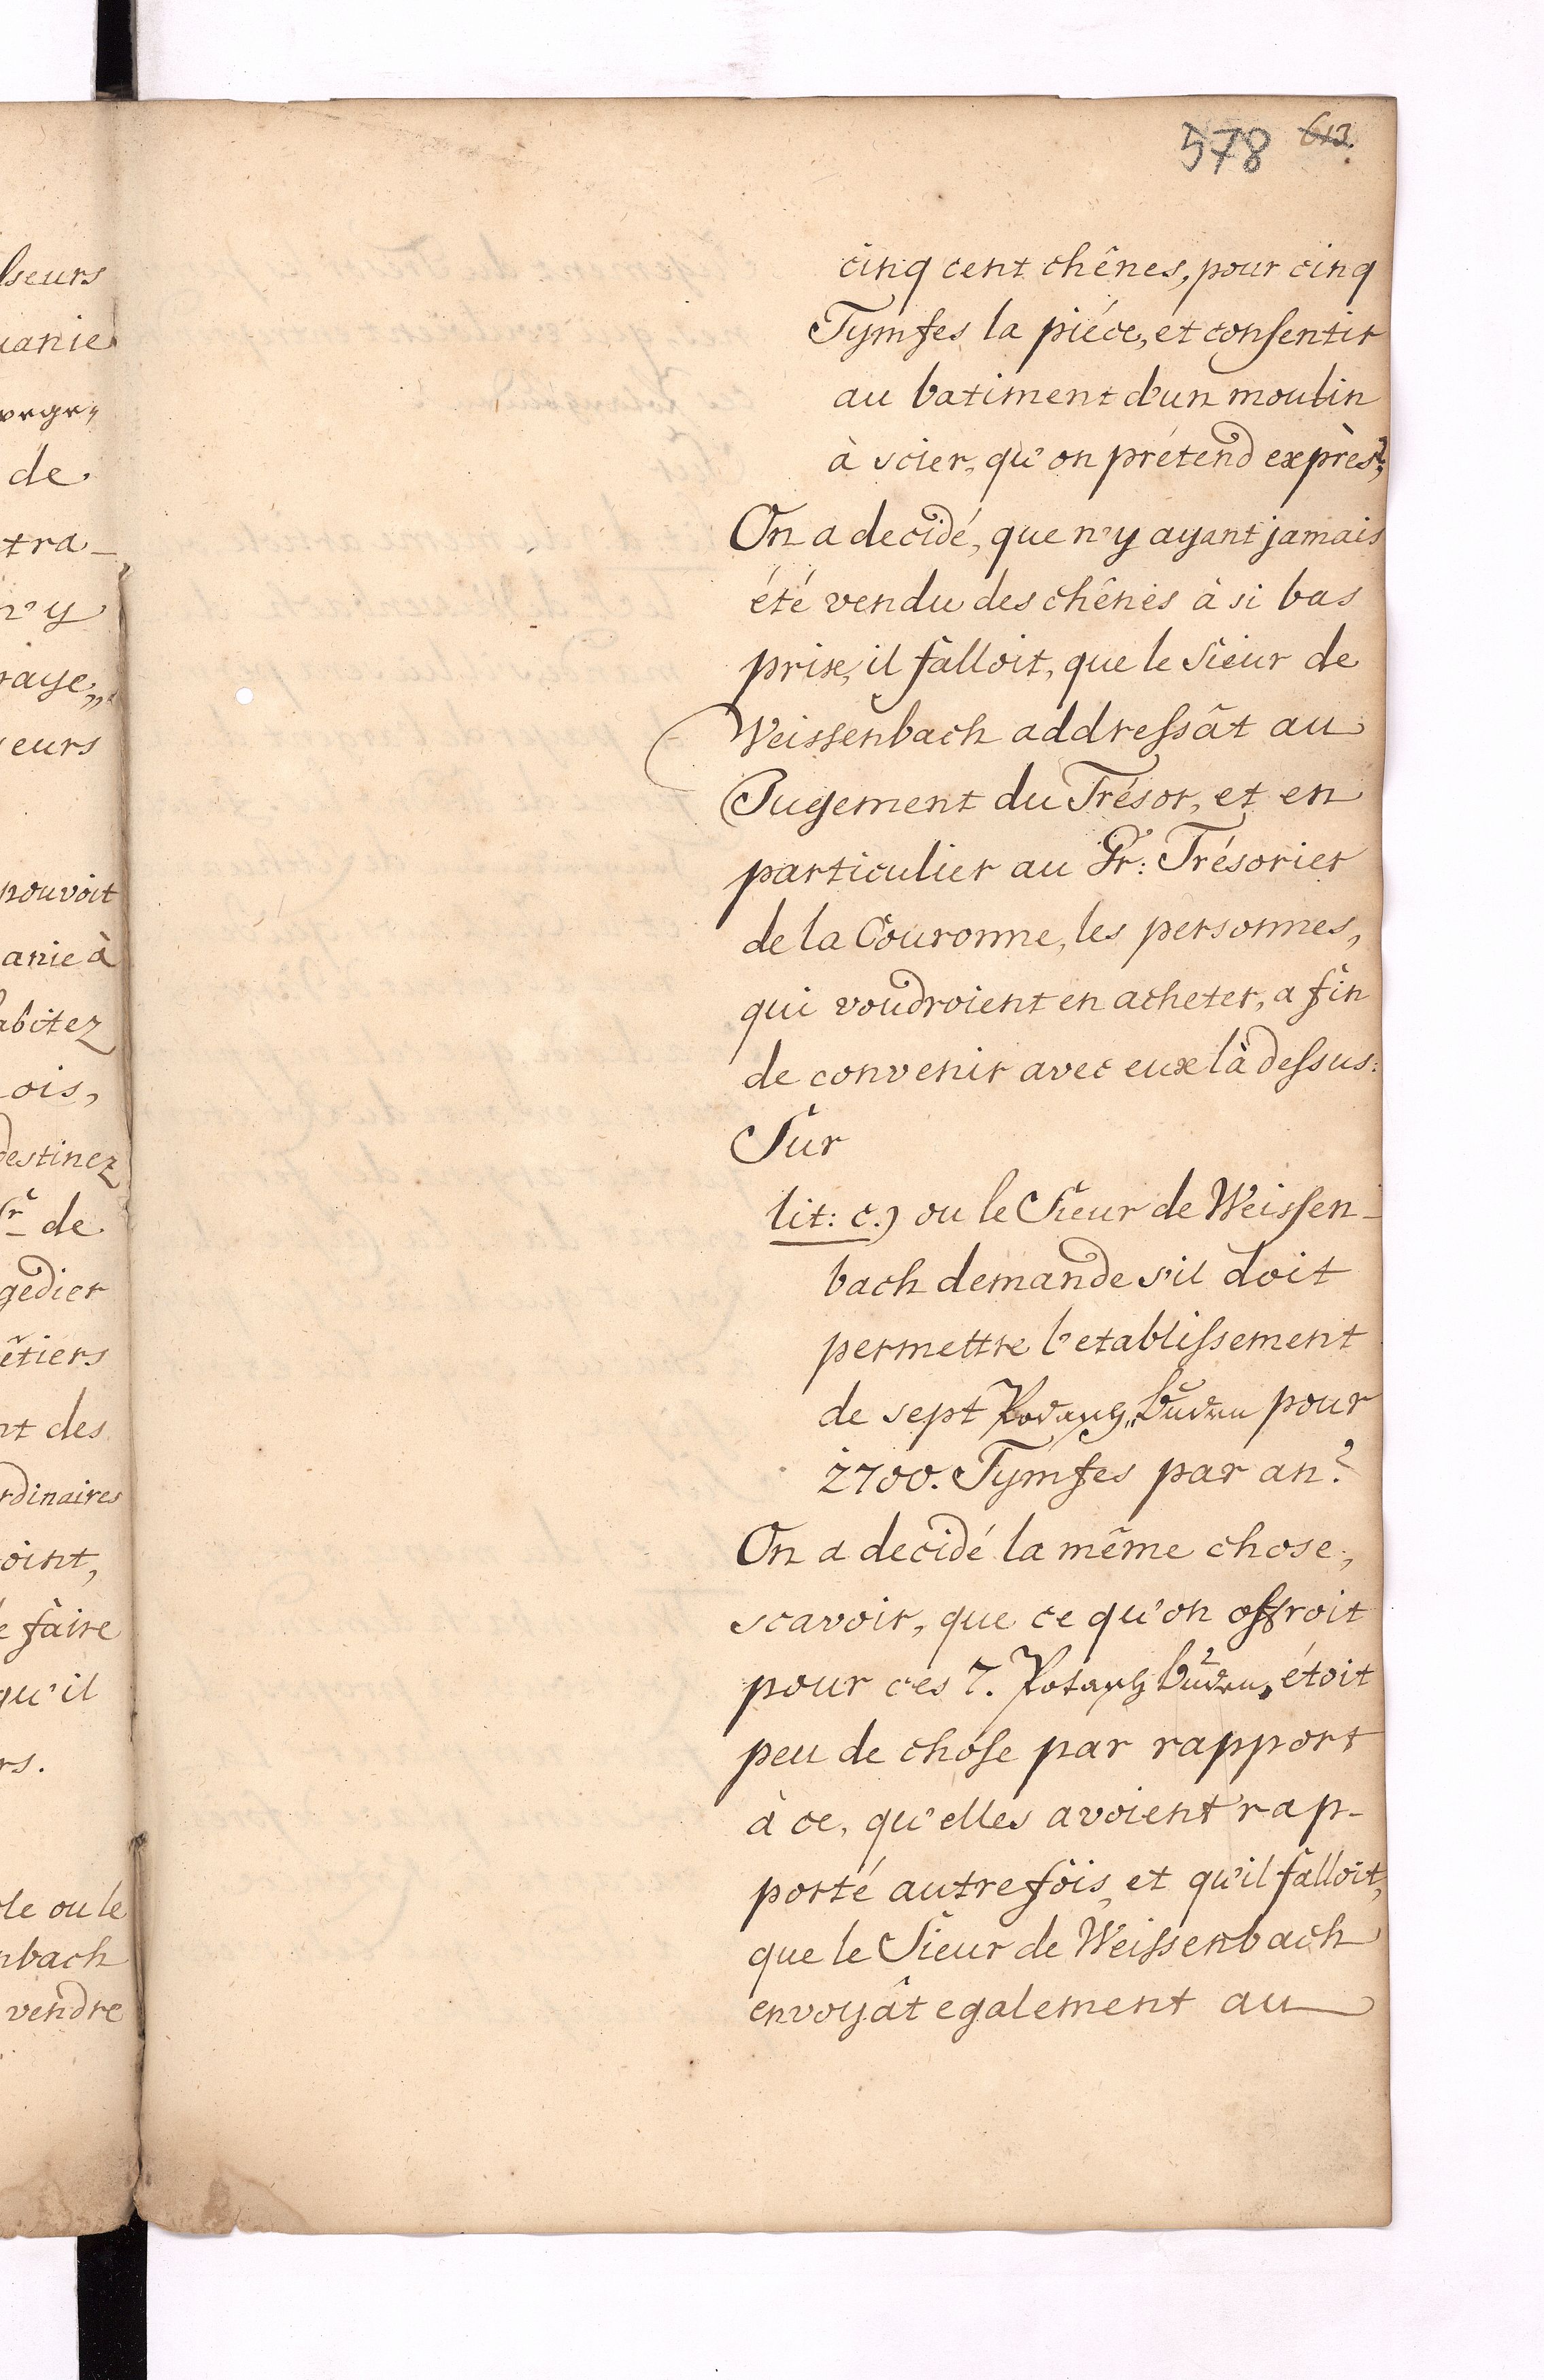 578 613.
cinq cent chênes, pour cinq
Tymfes la piéce, et consentir
au batiment d'un moulin
à scier, qu'on prétend exprès?
On a decidé, que n'y ayant jamais
été vendu des chênes à si bas
prix, il falloit, que le Sieur de
Weissenbach addressât au
Jugement du Trésor, et en
particulier au Gr: Trésorier
de la Couronne, les personnes,
qui voudroient en acheter, a fin
de convenir avec eux là dessus.
Sur
lit: c.) ou le Sieur de Weissen-
bach demande s'il doit
permettre l'etablissement
de sept Potasch Buden pour
2700. Tymfes par an?
On a decidé la même chose,
scavoir, que ce qu'on offroit
pour ces 7. Potasch Buden, étoit
peu de chose par rapport
à ce, qu'elles avoient rap-
porté autrefois, et qu'il falloit,
que le Sieur de Weissenbach
envoyât egalement au
lseurs
uanie
de
tra-
n'y
raye,,
eurs
pouvoit
anie à
abitez
ois,
destinez
Sr de
gedier
êtiers
nt des
rdinaires
oint,
e faire
qu'il
rs.
ole ou le
nbach
vendre